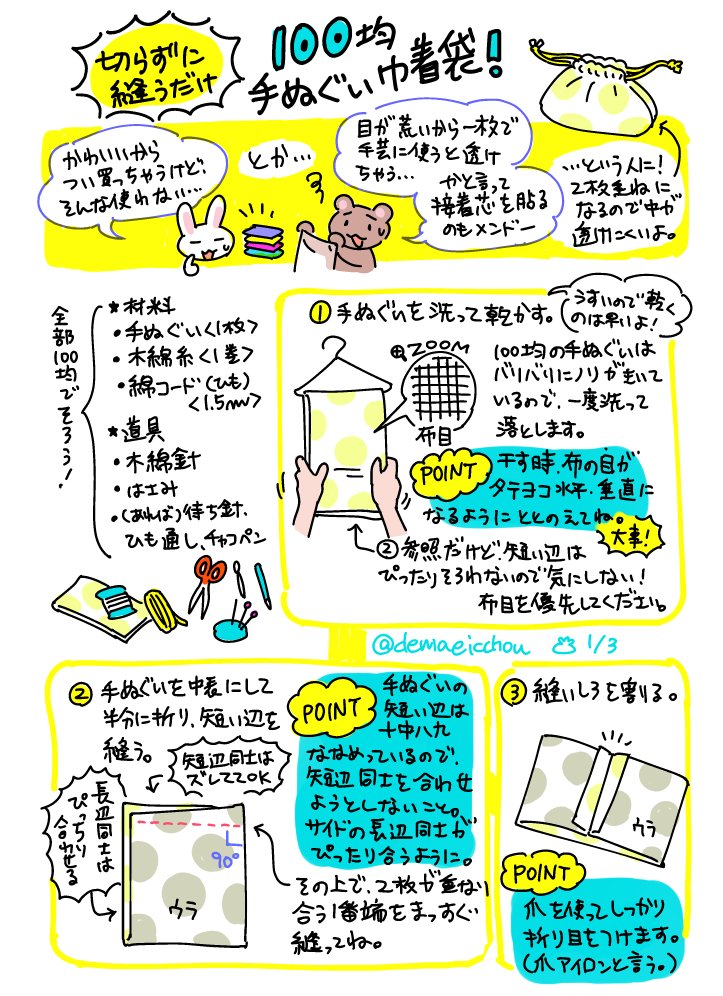 切らずに
縫うだけ
100均
手ぬぐい巾着袋!
かわいいから
つい買っちゃうけど、
そんな使わない…
とか…
目が荒いから一枚で
手芸に使うと透け
ちゃう…
かと言って
接着芯を貼る
のもメンドー
…という人に!
2枚重ねに
なるので中が
透けにくいよ。
全部100均でそろう!
★材料
・手ぬぐい<1枚>
・木綿糸<1巻>
・綿コード(ひも)
<1.5m>
★道具
・木綿針
・はさみ
・(あれば)待ち針、
ひも通し、チャコペン
① 手ぬぐいを洗って乾かす。
うすいので乾く
のは早いよ!
⊕ZOOM
布目
100均の手ぬぐいは
バリバリにノリが主いて
いるので、一度洗って
落とします。
POINT
干す時、布の目が
タテヨコ水平・垂直に
なるようにととのえてね。
大事!
②参照だけど、短い辺は
ぴったりそろわないので気にしない!
布目を優先してください。
@demaeicchou 1/3
② 手ぬぐいを中表にして
半分に折り、短い辺を
縫う。
短辺同士は
ズレててOK
長辺同士は
ぴっちり
合わせる
90°
ウラ
POINT
手ぬぐいの
短い辺は
十中八九
ななめっているので、
短辺同士を合わせ
ようとしないこと。
サイドの長辺同士が
ぴったり合うように。
その上で、2枚が重なり
合う1番端をまっすぐ
縫ってね。
③ 縫いしろを割る。
ウラ
POINT
爪を使ってしっかり
折り目をつけます。
(爪アイロンと言う。)